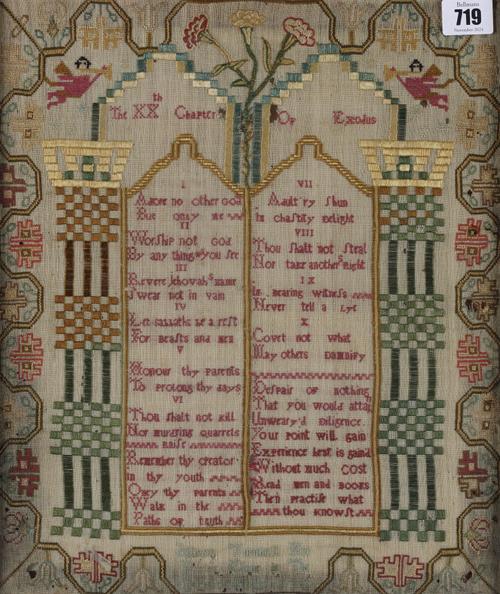 Bellmans
719
November 2024
The XXth Chapter Of Exodus
I
Adore no other god
But only me
II
Worship not god
By any thing you see
III
Revere Jehovahs name
Swear not in vain
IV
Let sabbaths be a rest
For beasts and men
V
Honour thy parents
To prolong thy days
VI
Thou shalt not kill
Nor murdring quarrels
raise
Remember thy creator
in thy youth
Obey thy parents
Walk in the
Paths of truth
VII
Adult'ry shun
In chastity delight
VIII
Thou shalt not steal
Nor take anothers right
IX
In bearing witness
Never tell a lye
X
Covet not what
May others damnify
Despair of nothing
That you would attain
Unweary'd Diligence
Your Point will gain
Experience best is gaind
Without much cost
Read men and books
Then practise what
thou knowst